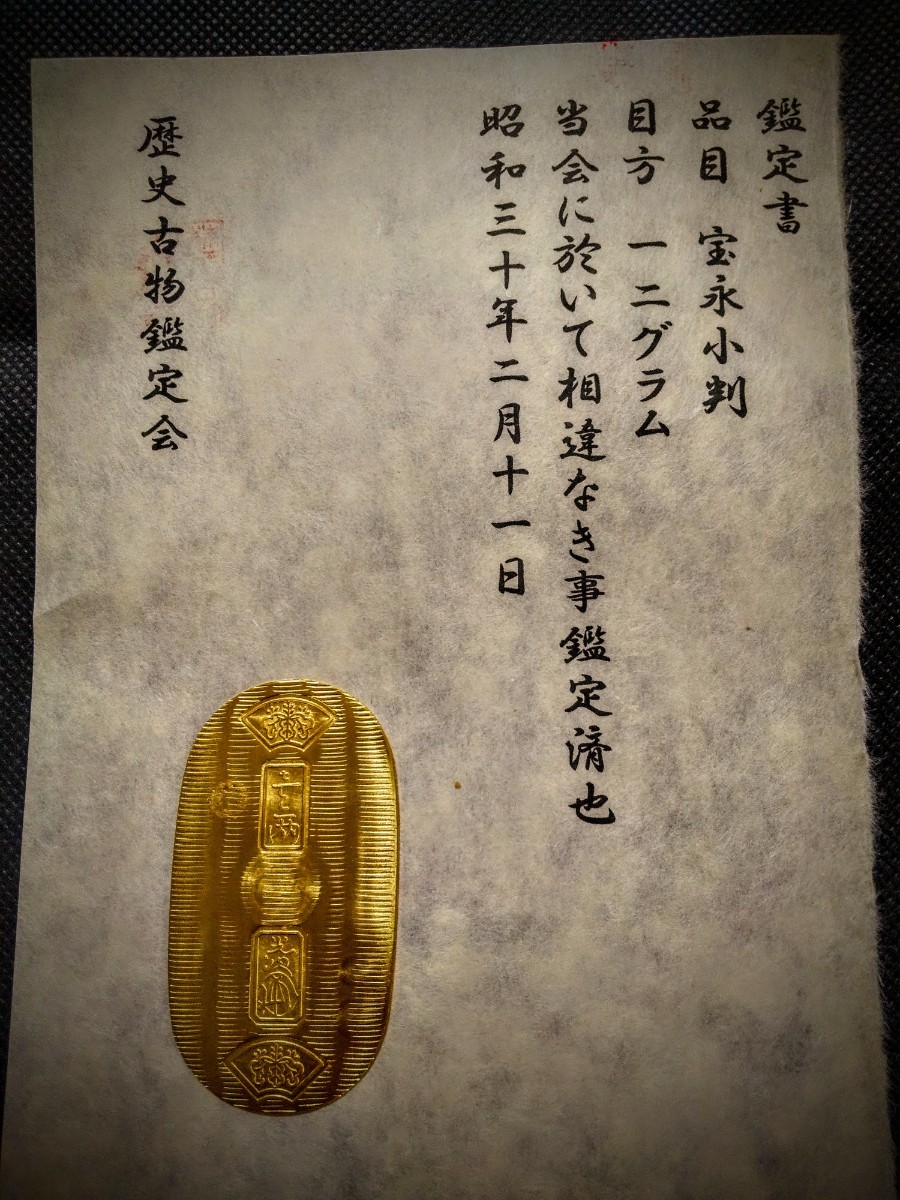 鑑定書
品目　宝永小判
目方　一二グラム
当会に於いて相違なき事鑑定済也
昭和三十年二月十一日
歴史古物鑑定会